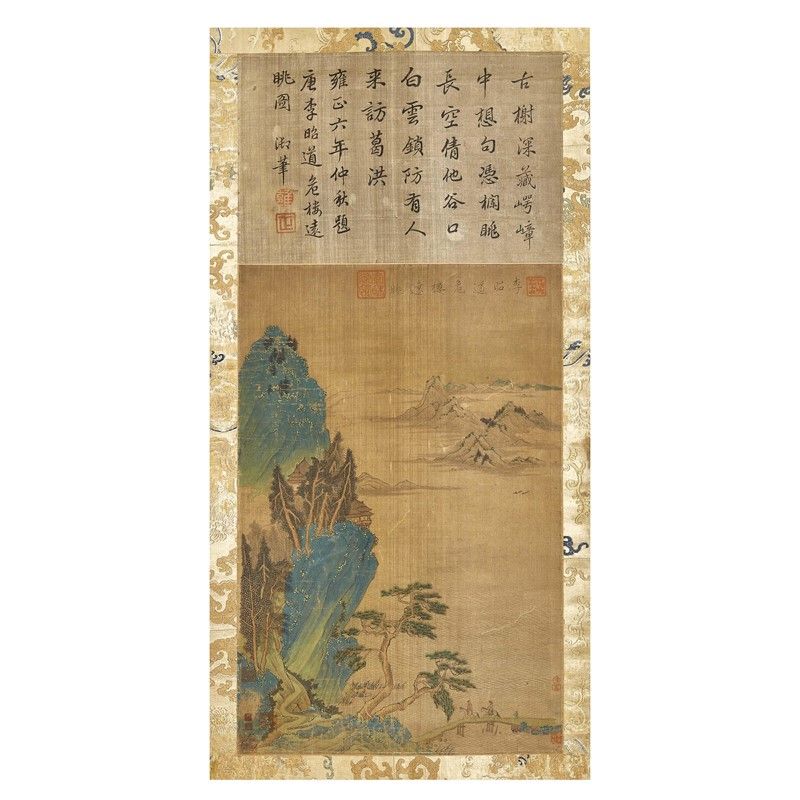 古榭深藏崿嶂
中想句憑欄眺
長空倩他谷口
白雲鎖防有人
來訪葛洪
雍正六年仲秋題
唐李昭道危樓遠
眺圖 御筆
李昭道危樓遠眺